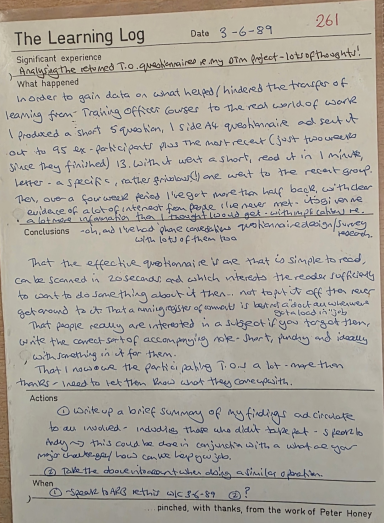 261
The Learning Log Date 3-6-89
Significant experience
Analysing the returned T.O. questionnaires re my OTM project - lots of thoughts!
What happened
In order to gain data on what helped/hindered the transfer of
learning from Training Officer Courses to the real world of work
I produced a short 5 question, 1 side A4 questionnaire and sent it
out to 95 ex-participants plus the most recent (just two weeks
since they finished) 13. With it went a short, read it in 1 minute,
letter - a specific, rather one went to the recent group.
Then, over a four week period I've got more than half back, with clear
evidence of a lot of interest from people I've never met. It's given me
a lot more information than I thought I would get - with implications re.
Conclusions - oh, and I've had phone questionnaire design/survey
with lots of them too research.
That the effective questionnaire is one that is simple to read,
can be scanned in 20 seconds and which interests the reader sufficiently
to want to do something about it then... not to put it off then never
get around to it. That a running register of comments is best
get a load in
That people really are interested in a subject if you target them,
write the correct sort of accompanying note - short, punchy and ideally
with something in it for them.
That I now owe the participating T.O.s a lot - more than
thanks - I need to let them know what they came up with.
Actions
① Write up a brief summary of my findings and circulate
to all involved - includes those who didn't take part - speak to
Andy → this could be done in conjunction with a what are your
major challenges/how can we help you job.
② Take the above into account when doing a similar operation.
When
① - Speak to re this w/c 5-6-89 ② ?
pinched, with thanks, from the work of Peter Honey